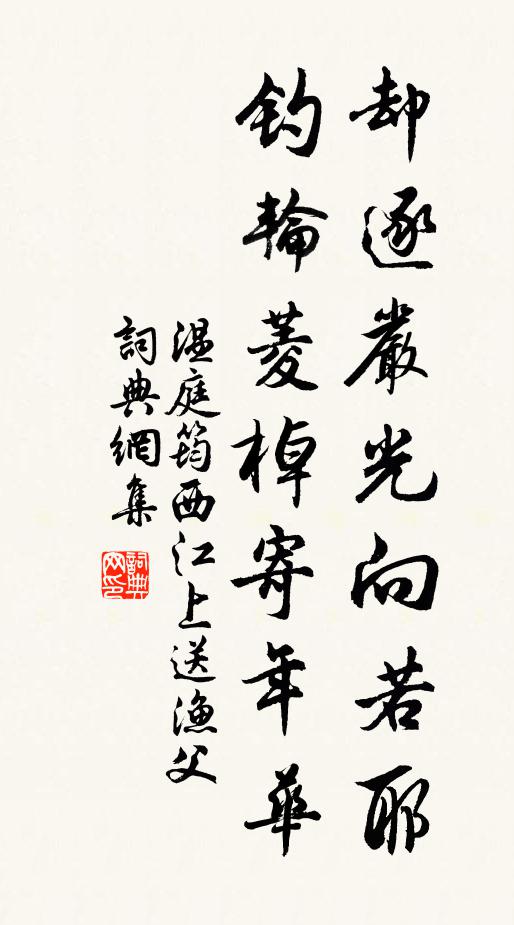 却逐嚴光向若耶
釣輪菱棹寄年華
溫庭筠西江上送漁父
詞典網集
詞典網印